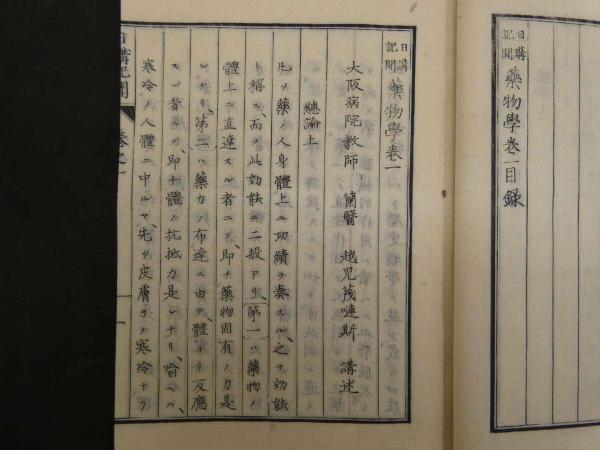 日講記聞 藥物學卷一目録
日講記聞 藥物學卷一
大阪病院教師 蘭醫 越尔蔑嗹斯 講述
總論上
凡ソ藥ノ人身體上ニ功績ヲ奏スル之ヲ効能
ト稱ス而ソ此効能ニ二般アリ第一ハ藥物ノ
體上ニ直達スル者ニソ即チ藥物固有ノ力是
レナリ第二ハ藥力ノ布達ニ由テ體ヨリ反應
スル者ニソ即チ體ノ抗抵力是レナリ喻ヘハ
寒冷ノ人體ニ中ルヤ先ツ皮膚ヲソ寒冷ナラ
日講記聞 卷之一